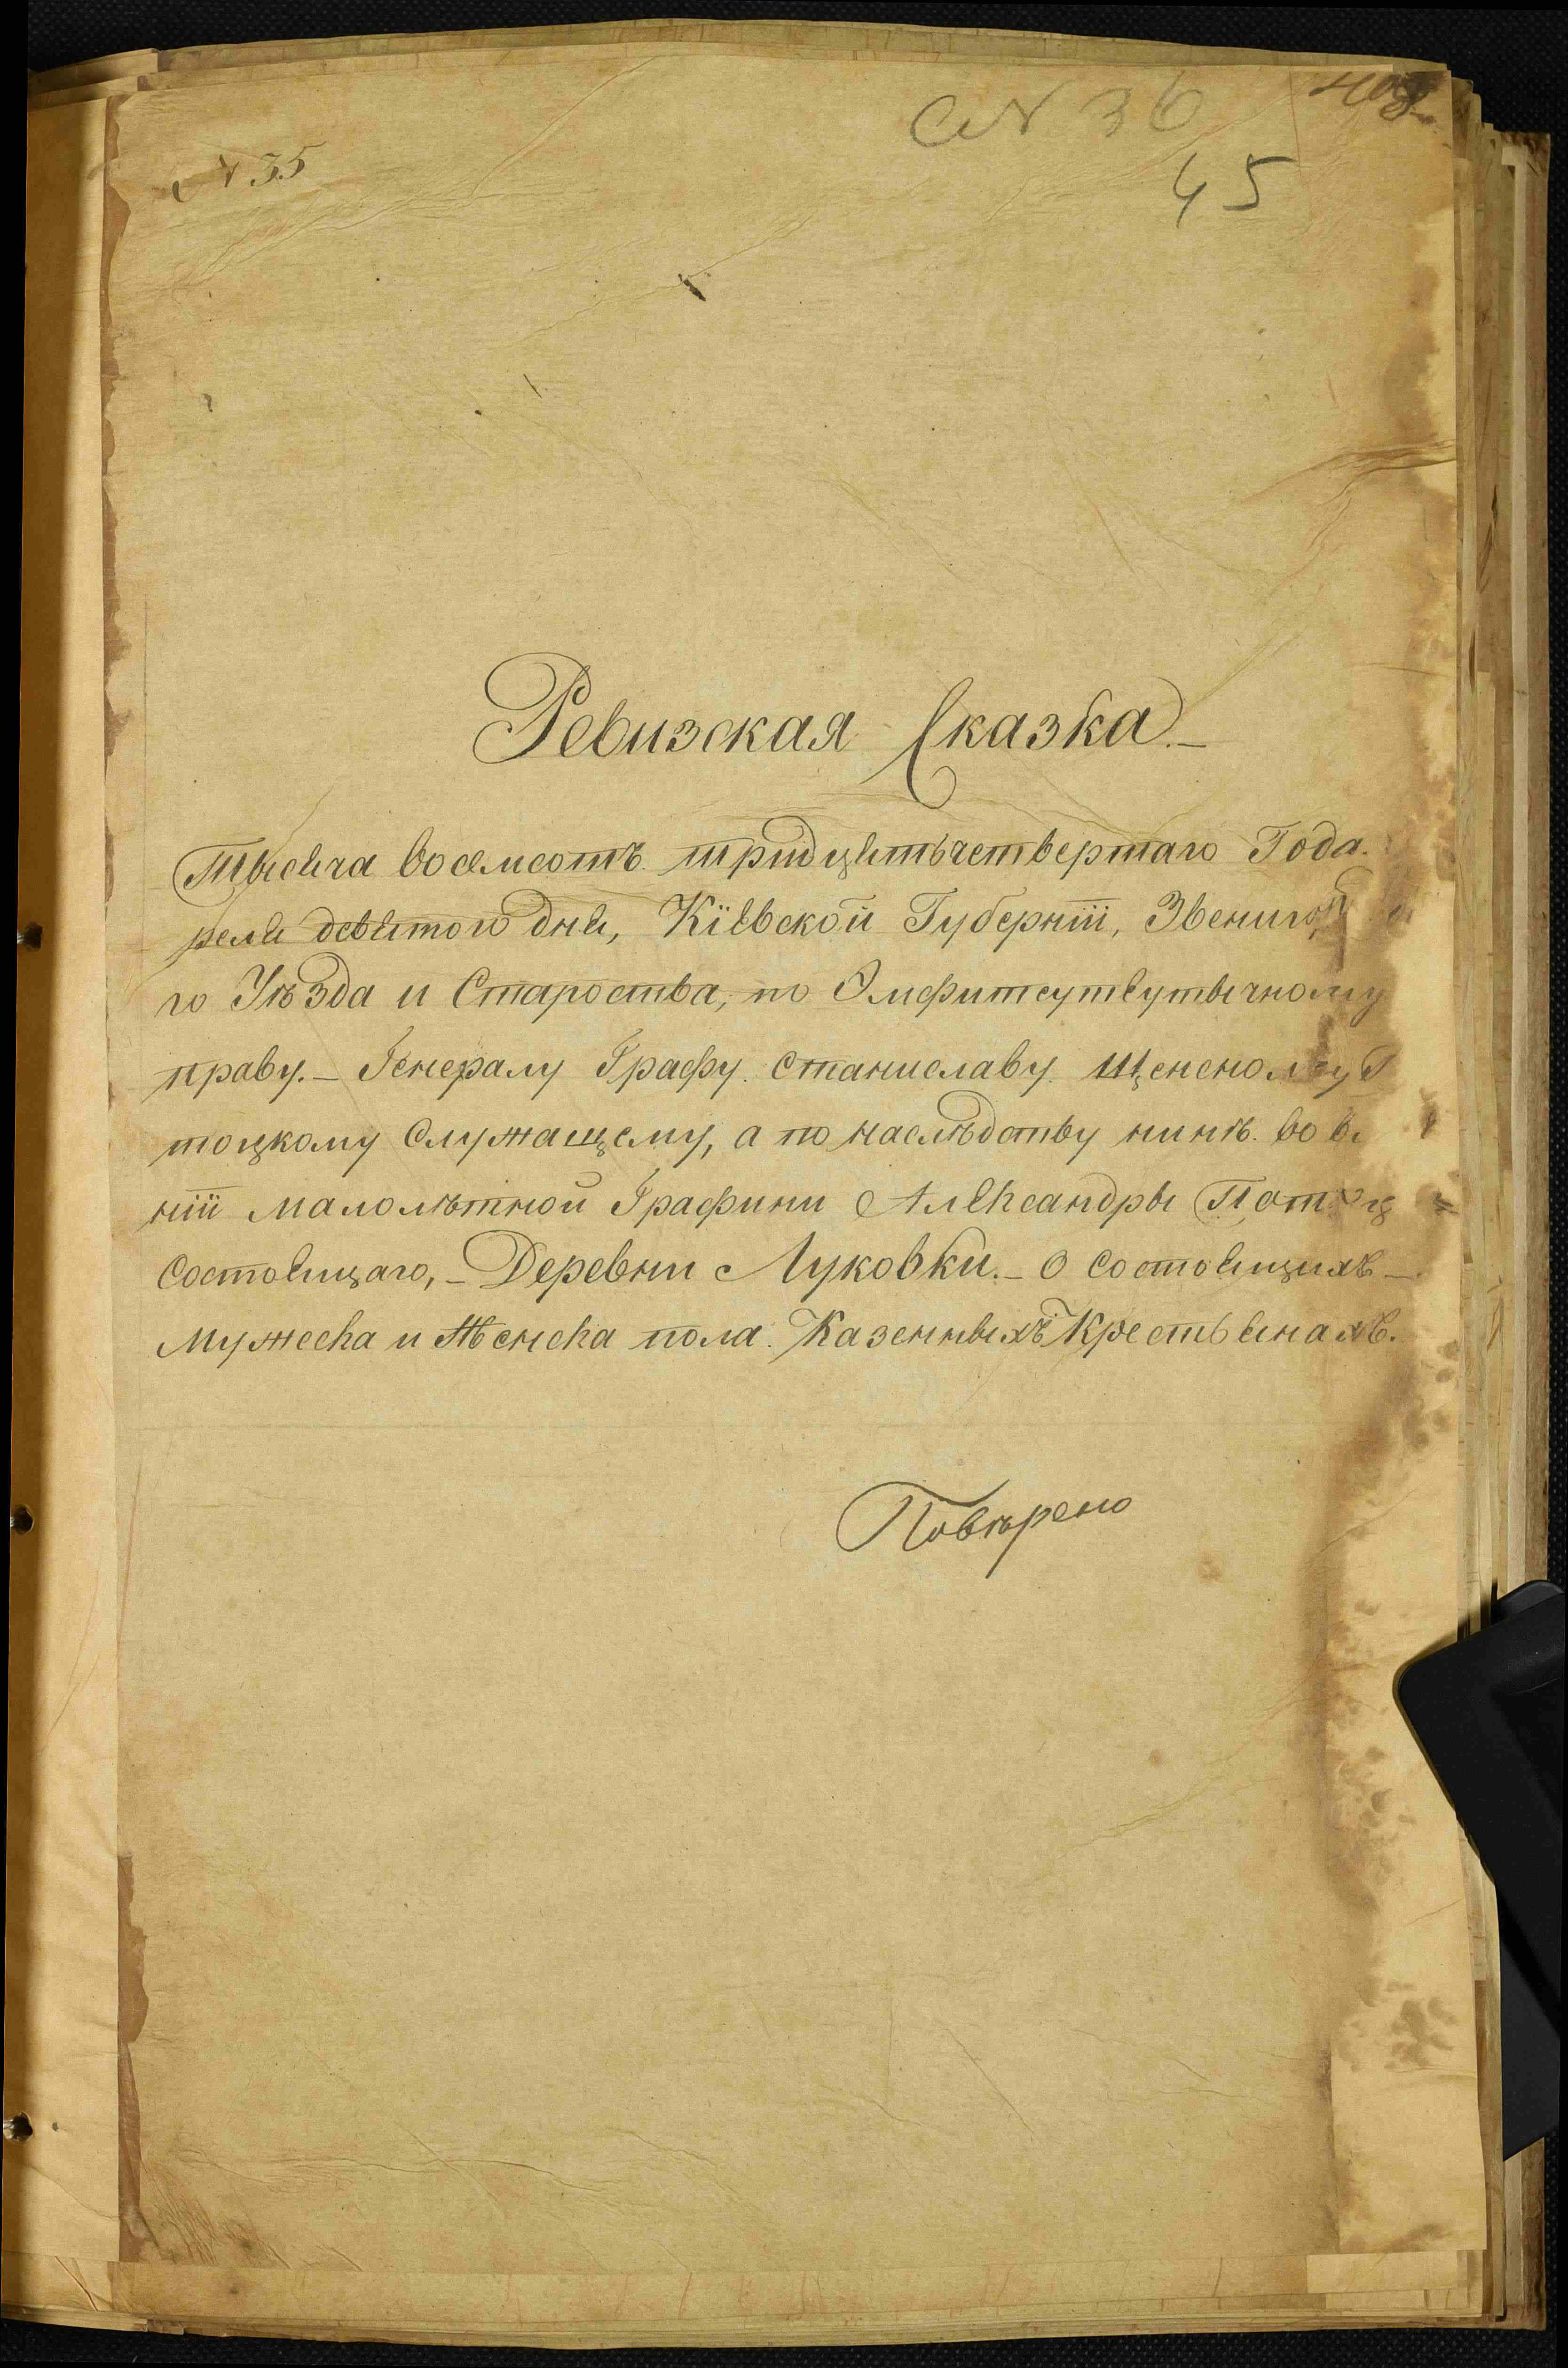 № 36
№ 35
45
Ревизская Сказка.—
Тысяча восемсотъ тридцять четвертаго Года.
реля девятого дня, Кіевской Губерніи, Звениго
го Уѣзда и Староства, по Эмфитеутеутычному
праву.— Генералу Графу Станиславу Щенсному П
тоцкому Служащему, а по наслѣдству нинѣ во в
ніи малолѣтной Графини Александры Потоц
Состоящаго,— Деревни Луковки.— О состоящихъ —
Мужеска и Женска пола Казенныхъ Крестьянахъ.
Повѣрено